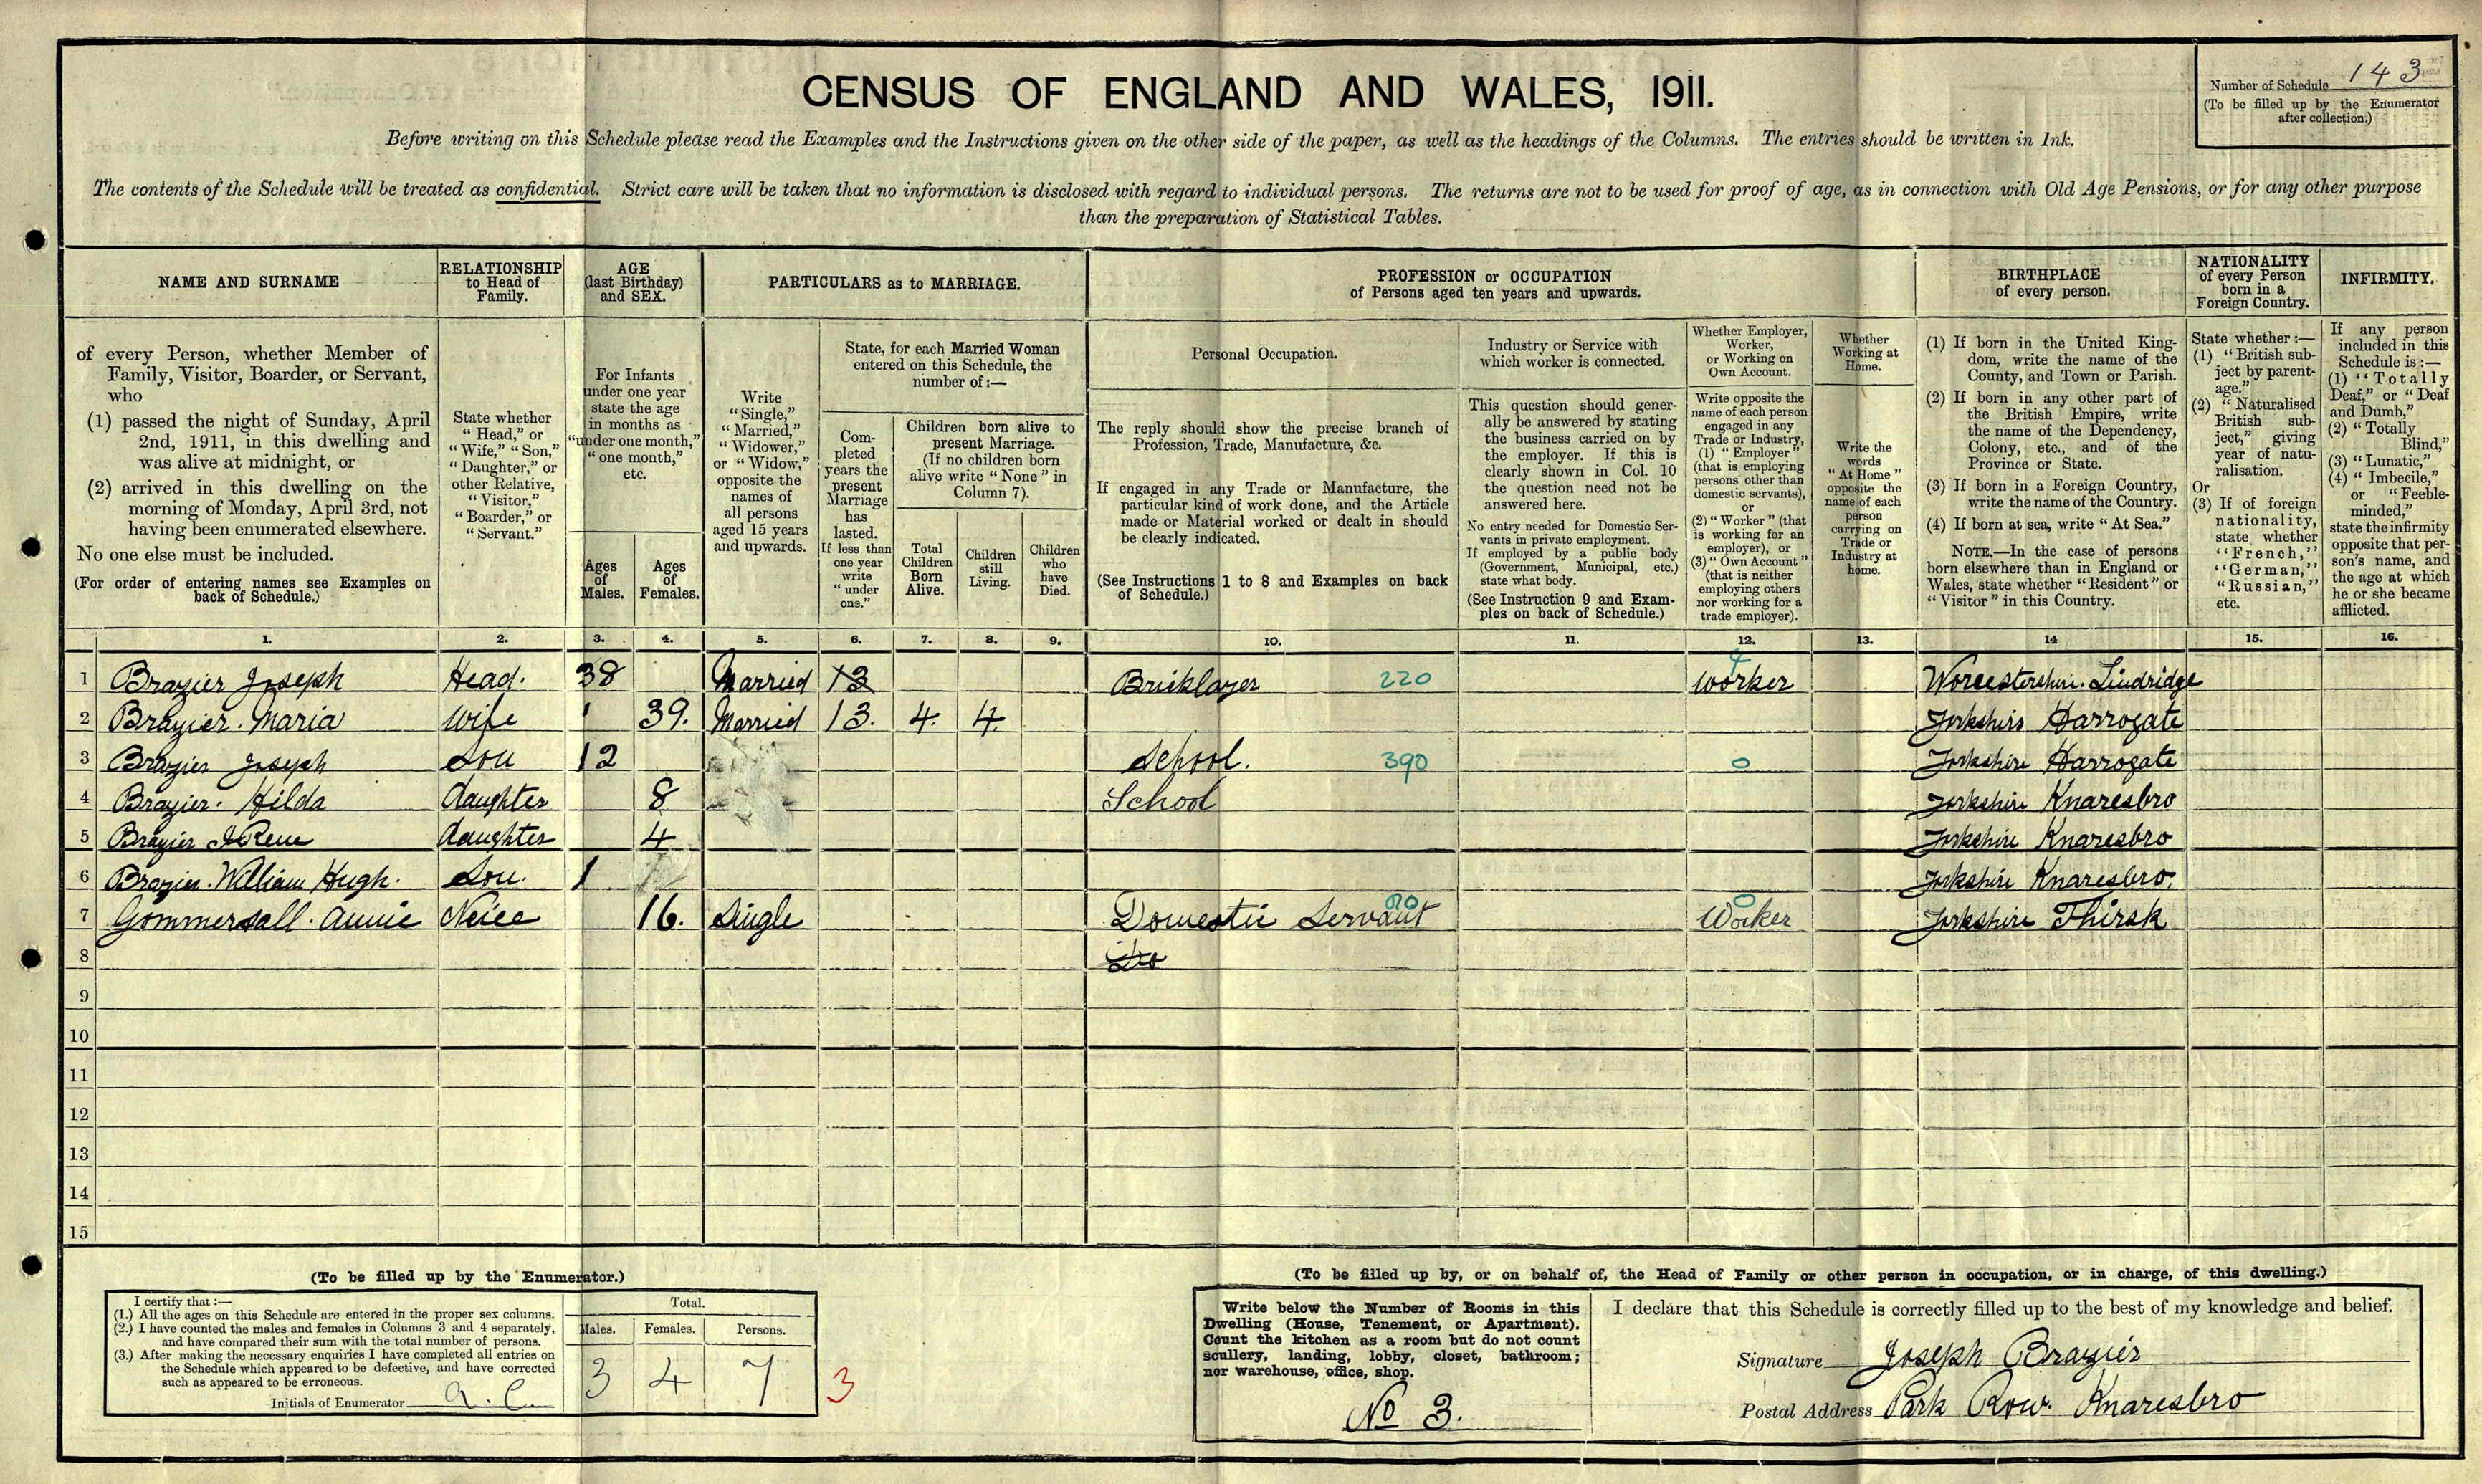 CENSUS OF ENGLAND AND WALES, 1911.
Number of Schedule 143
(To be filled up by the Enumerator
after collection.)
Before writing on this Schedule please read the Examples and the Instructions given on the other side of the paper, as well as the headings of the Columns. The entries should be written in Ink.
The contents of the Schedule will be treated as confidential. Strict care will be taken that no information is disclosed with regard to individual persons. The returns are not to be used for proof of age, as in connection with Old Age Pensions, or for any other purpose
than the preparation of Statistical Tables.
NAME AND SURNAME
of every Person, whether Member of
Family, Visitor, Boarder, or Servant,
who
(1) passed the night of Sunday, April
2nd, 1911, in this dwelling and
was alive at midnight, or
(2) arrived in this dwelling on the
morning of Monday, April 3rd, not
having been enumerated elsewhere.
No one else must be included.
(For order of entering names see Examples on
back of Schedule.)
RELATIONSHIP
to Head of
Family.
State whether
"Head," or
"Wife," "Son,"
"Daughter," or
other Relative,
"Visitor,"
"Boarder," or
"Servant."
AGE
(last Birthday)
and SEX.
For Infants
under one year
state the age
in months as
"under one month,"
"one month,"
etc.
Ages
of
Males.
Ages
of
Females.
PARTICULARS as to MARRIAGE.
Write
"Single,"
"Married,"
"Widower,"
or "Widow,"
opposite the
names of
all persons
aged 15 years
and upwards.
State, for each Married Woman
entered on this Schedule, the
number of:—
Com-
pleted
years the
present
Marriage
has
lasted.
If less than
one year
write
"under
one."
Children born alive to
present Marriage.
(If no children born
alive write "None" in
Column 7).
Total
Children
Born
Alive.
Children
still
Living.
Children
who
have
Died.
PROFESSION or OCCUPATION
of Persons aged ten years and upwards.
Personal Occupation.
The reply should show the precise branch of
Profession, Trade, Manufacture, &c.
If engaged in any Trade or Manufacture, the
particular kind of work done, and the Article
made or Material worked or dealt in should
be clearly indicated.
(See Instructions 1 to 8 and Examples on back
of Schedule.)
Industry or Service with
which worker is connected.
This question should gener-
ally be answered by stating
the business carried on by
the employer. If this is
clearly shown in Col. 10
the question need not be
answered here.
No entry needed for Domestic Ser-
vants in private employment.
If employed by a public body
(Government, Municipal, etc.)
state what body.
(See Instruction 9 and Exam-
ples on back of Schedule.)
Whether Employer,
Worker,
or Working on
Own Account.
Write opposite the
name of each person
engaged in any
Trade or Industry,
(1) "Employer"
(that is employing
persons other than
domestic servants),
or
(2) "Worker" (that
is working for an
employer), or
(3) "Own Account"
(that is neither
employing others
nor working for a
trade employer).
Whether
Working at
Home.
Write the
words
"At Home"
opposite the
name of each
person
carrying on
Trade or
Industry at
home.
BIRTHPLACE
of every person.
(1) If born in the United King-
dom, write the name of the
County, and Town or Parish.
(2) If born in any other part of
the British Empire, write
the name of the Dependency,
Colony, etc., and of the
Province or State.
(3) If born in a Foreign Country,
write the name of the Country.
(4) If born at sea, write "At Sea."
NOTE.—In the case of persons
born elsewhere than in England or
Wales, state whether "Resident" or
"Visitor" in this Country.
NATIONALITY
of every Person
born in a
Foreign Country.
State whether:—
(1) "British sub-
ject by parent-
age."
(2) "Naturalised
British sub-
ject," giving
year of natu-
ralisation.
Or
(3) If of foreign
nationality,
state whether
"French,"
"German,"
"Russian,"
etc.
INFIRMITY.
If any person
included in this
Schedule is:—
(1) "Totally
Deaf," or "Deaf
and Dumb,"
(2) "Totally
Blind,"
(3) "Lunatic,"
(4) "Imbecile,"
or "Feeble-
minded,"
state the infirmity
opposite that per-
son's name, and
the age at which
he or she became
afflicted.
1. 2. 3. 4. 5. 6. 7. 8. 9. 10. 11. 12. 13. 14 15. 16.
1 Brazier Joseph Head. 38 Married 13 Bricklayer 220 Worker Worcestershire. Lindridge
2 Brazier. Maria Wife 39. Married 13. 4. 4. Yorkshire Harrogate
3 Brazier Joseph Son 12 School. 390 0 Yorkshire Harrogate
4 Brazier. Hilda daughter 8 School Yorkshire Knaresbro
5 Brazier IRene daughter 4 Yorkshire Knaresbro
6 Brazier. William Hugh. Son. 1 Yorkshire Knaresbro.
7 Gommersall. Annie Neice 16. Single Domestic Servant 0 Worker Yorkshire Thirsk
8 Do
9
10
11
12
13
14
15
(To be filled up by the Enumerator.)
I certify that:—
(1.) All the ages on this Schedule are entered in the proper sex columns.
(2.) I have counted the males and females in Columns 3 and 4 separately,
and have compared their sum with the total number of persons.
(3.) After making the necessary enquiries I have completed all entries on
the Schedule which appeared to be defective, and have corrected
such as appeared to be erroneous.
Initials of Enumerator A. C.
Total.
Males. Females. Persons.
3 4 7
3
(To be filled up by, or on behalf of, the Head of Family or other person in occupation, or in charge, of this dwelling.)
Write below the Number of Rooms in this
Dwelling (House, Tenement, or Apartment).
Count the kitchen as a room but do not count
scullery, landing, lobby, closet, bathroom;
nor warehouse, office, shop.
No 3.
I declare that this Schedule is correctly filled up to the best of my knowledge and belief.
Signature Joseph Brazier
Postal Address Park Row. Knaresbro